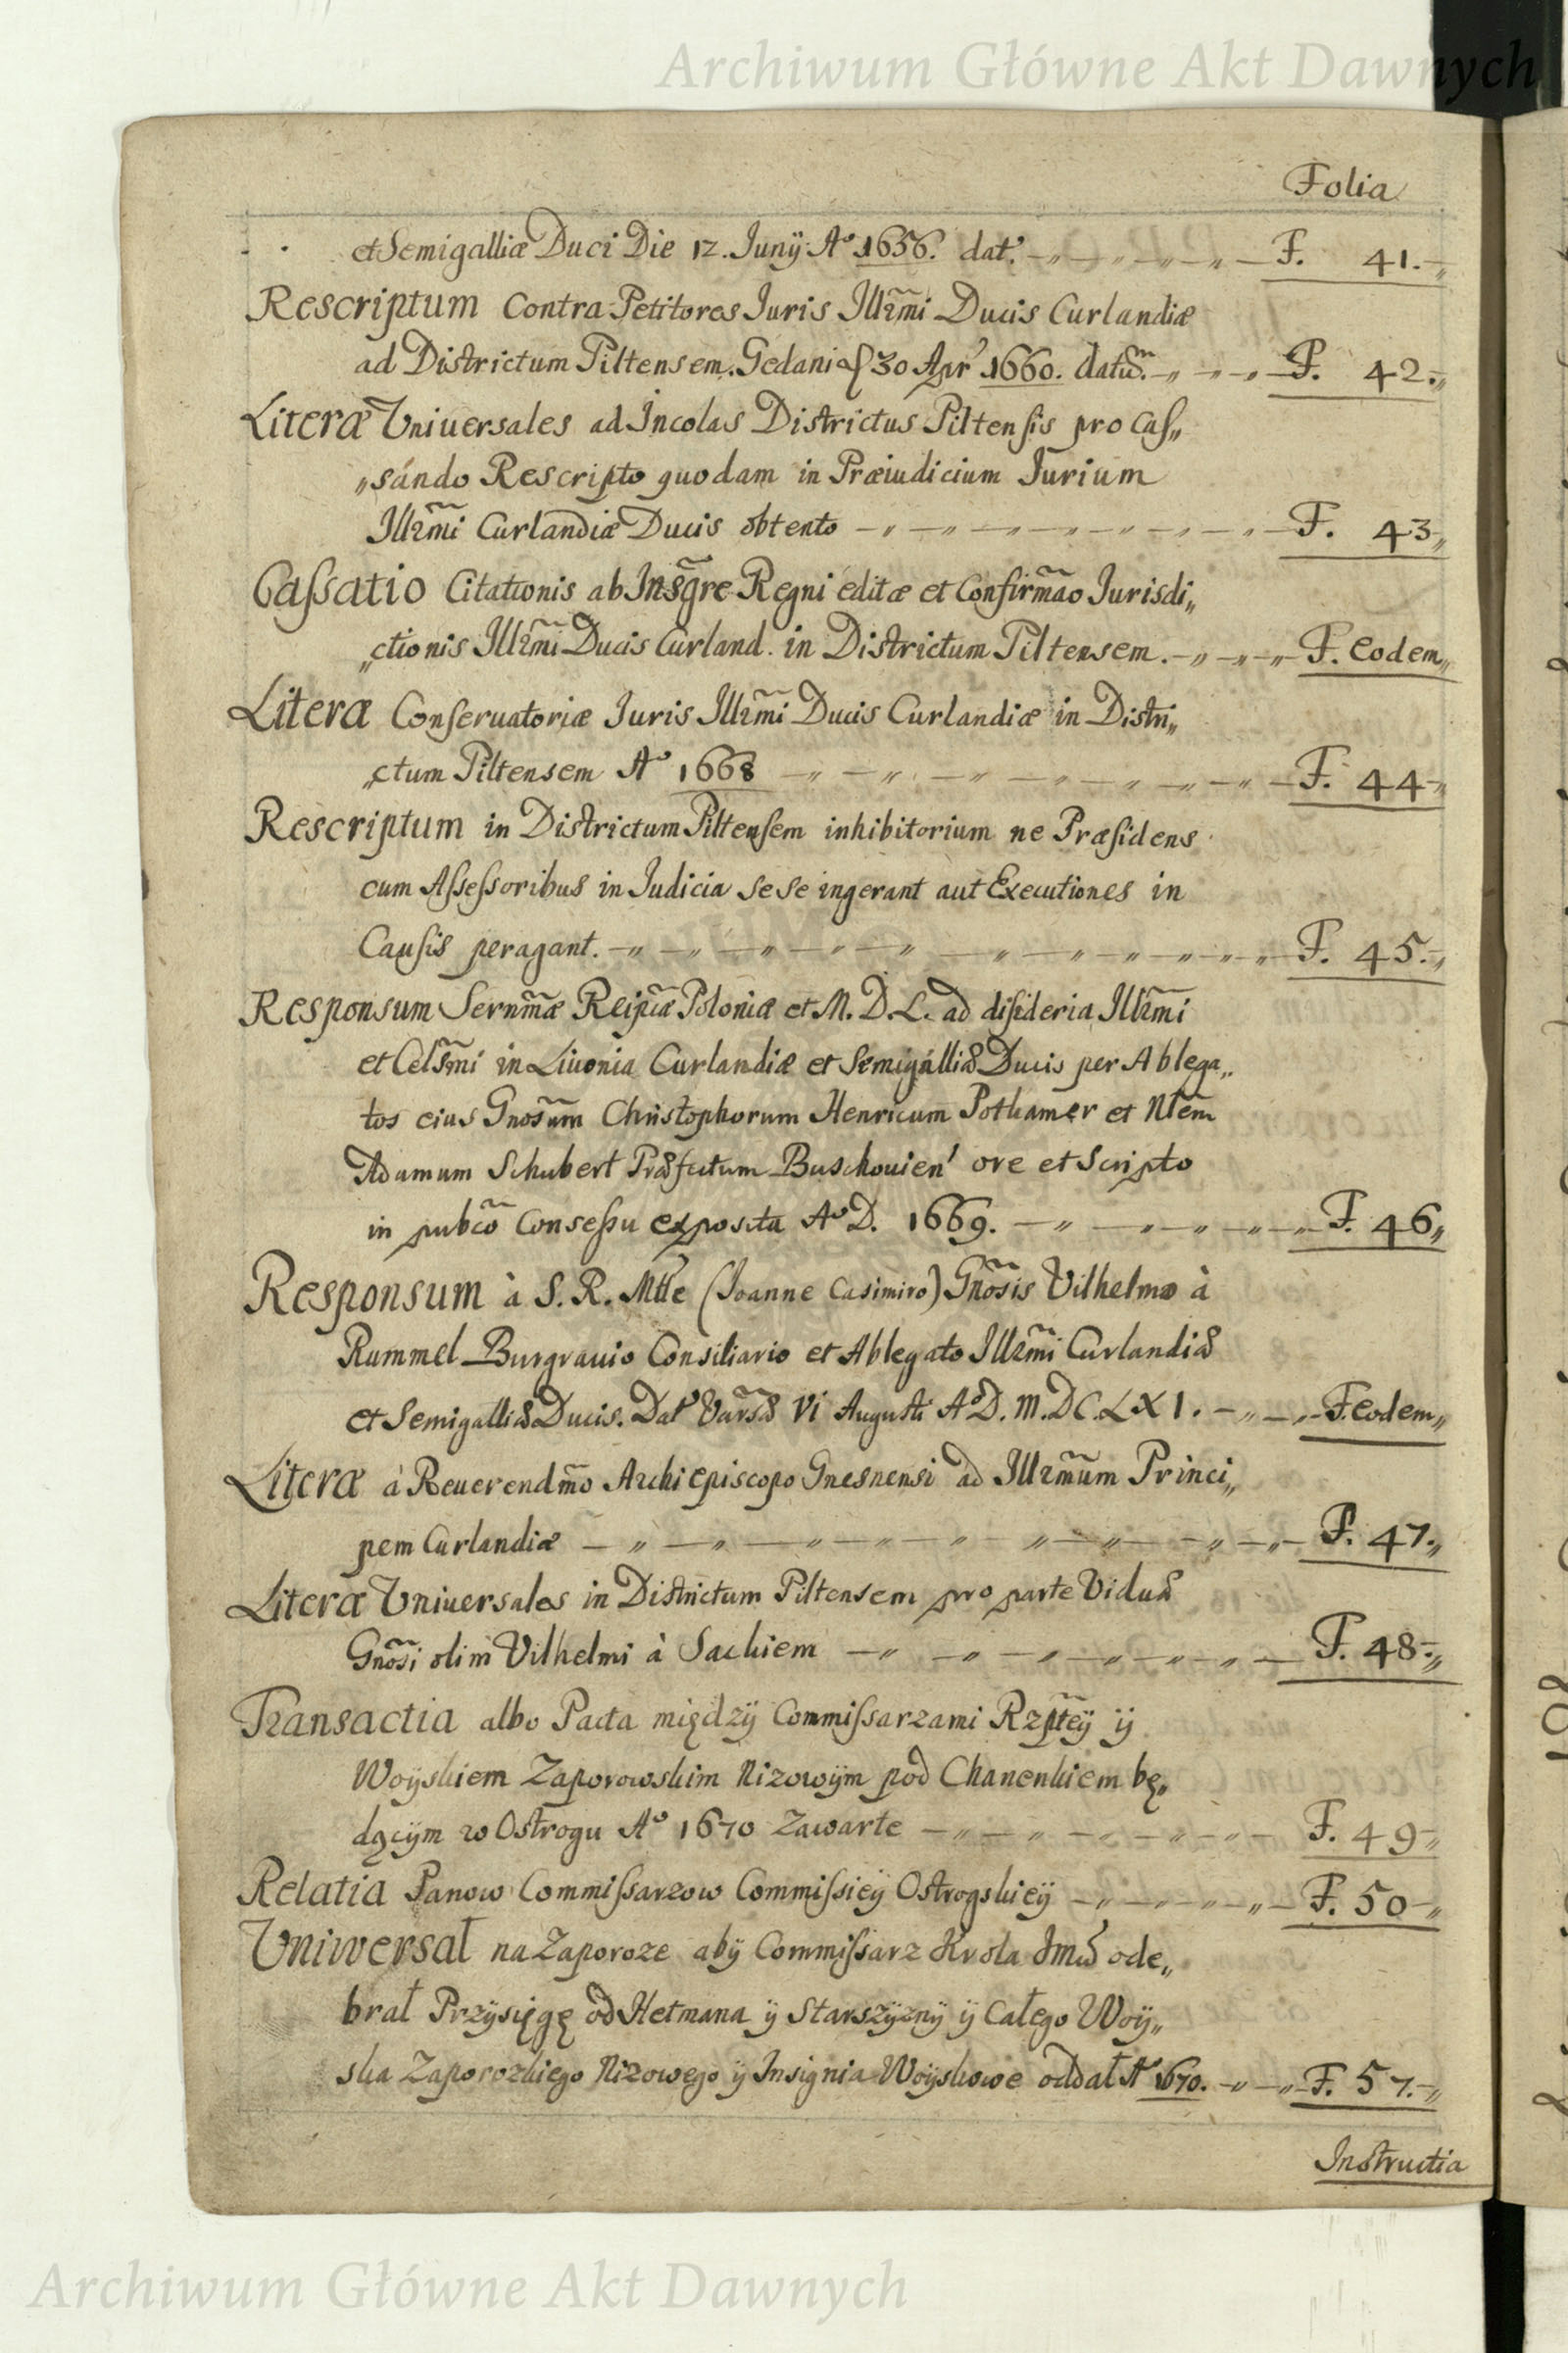 Archiwum Główne Akt Dawnych
Folia
et Semigalliæ Duci Die 12. Junÿ A° 1656. dat. F. 41.
Rescriptum Contra Petitores Juris Illr̃mi Ducis Curlandiæ
ad Districtum Piltensem. Gedani 30 Apr 1660. datũ. F. 42.
Literæ Vniuersales ad Incolas Districtus Piltensis pro Caſ„
„sándo Rescripto quodam in Præiudicium Iurium
Illr̃mi Curlandiæ Ducis obtento F. 43
Caſsatio Citationis ab Insg̃re Regni editæ et Confirmão Jurisdi„
„ctionis Illr̃mi Ducis Curland. in Districtum Piltensem. F. eodem„
Literæ Conseruatoriæ Juris Illr̃mi Ducis Curlandiæ in Distri„
„ctum Piltensem A° 1668 F. 44
Rescriptum in Districtum Piltenſem inhibitorium ne Præſidens
cum Aſseſsoribus in Judicia sese ingerant aut Executiones in
Cauſis peragant. F. 45.
Responsum Sernm̃æ Reip̃cæ Poloniæ et M. D. L. ad disideria Illr̃mi
et Cels̃mi in Liuonia Curlandiæ et Semigálliæ Ducis per Ablega„
tos eius Gnos̃um Christophorum Henricum Pothamer et Nlem̃
Adamum Schubert Præfectum Buschouien' ore et Scripto
in pubc̃o Conseſsu exposita A° D. 1669. F. 46„
Responsum à S. R. Mtte (Joanne Casimiro) Gnõsis Vilhelmo à
Rummel Burgrauio Consiliario et Ablegato Illr̃mi Curlandiæ
et Semigalliæ Ducis. Dat Varsæ̃ VI Augusti A° D. M.DC.LXI. F. eodem„
Literæ à Reuerendm̃o Archiepiscopo Gnesnensi ad Illrm̃um Princi„
pem Curlandiæ F. 47.
Literæ Vniuersales in Districtum Piltensem pro parte Viduæ
Gnõsi olim Vilhelmi à Sackiem F. 48.
Transactia albo Pacta międzÿ Commiſsarzami Rzp̃teÿ ÿ
Woÿskiem Zaporowskim Nizowÿm pod Chanenkiem bę„
dącÿm w Ostrogu A° 1670 Zawarte F. 49
Relatia Panow Commiſsarzow Commiſsieÿ Ostrogskieÿ F. 50
Vniwersał na Zaporoze abÿ Commiſsarz Krola Jmći ode„
brał Przÿsięgę od Hetmana ÿ Starszÿznÿ ÿ Całego Woÿ„
ska Zaporozkiego Nizowego ÿ Insignia Woÿskowe oddał A° 1670. F. 57.
Instructia
Archiwum Główne Akt Dawnych